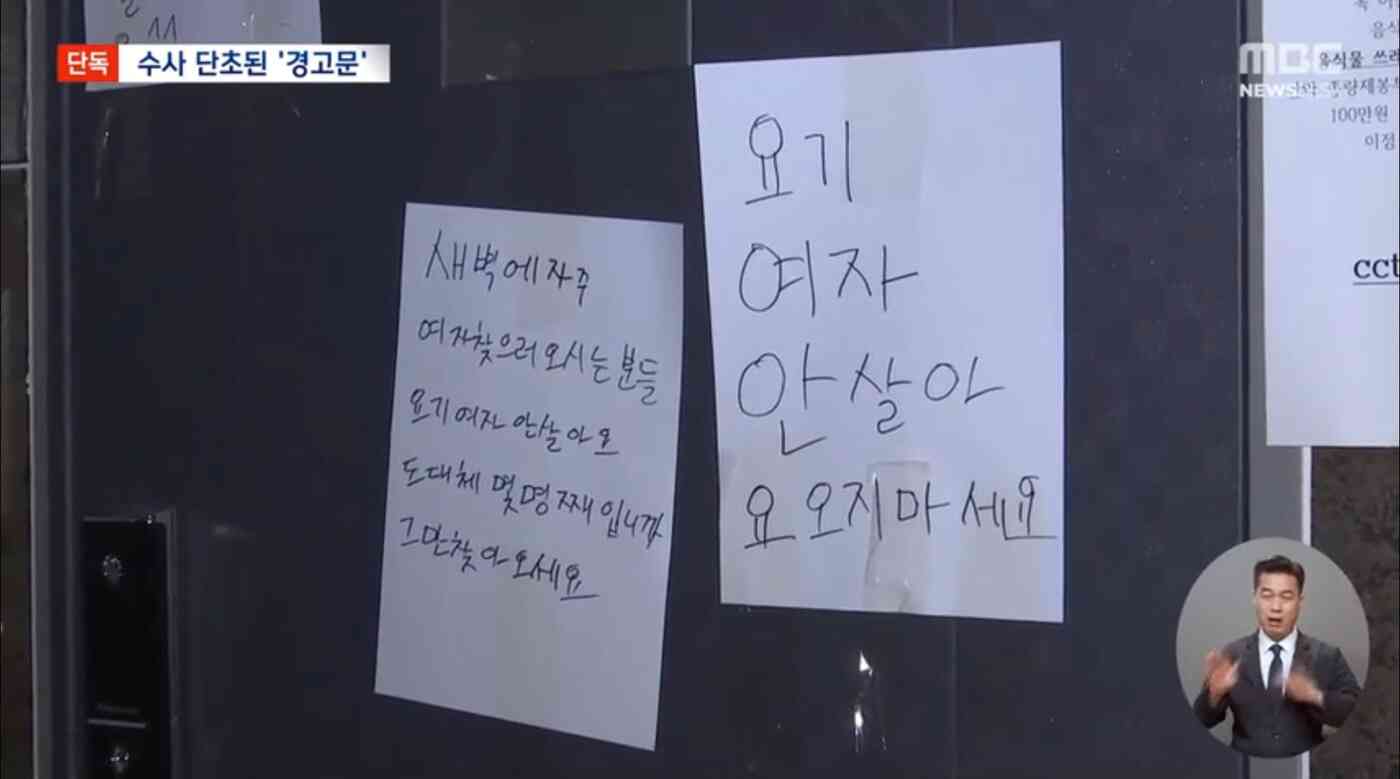 단독 수사 단초된 '경고문'
MBC
NEWS
새벽에자주
여자찾으러 오시는 분들
요기여자 안살아요
도대체 몇명째입니까
그만찾아 오세요
요기
여자
안살아
요 오지마세요
음식
음식물 쓰레
종량제봉투
100만원
이정
cct